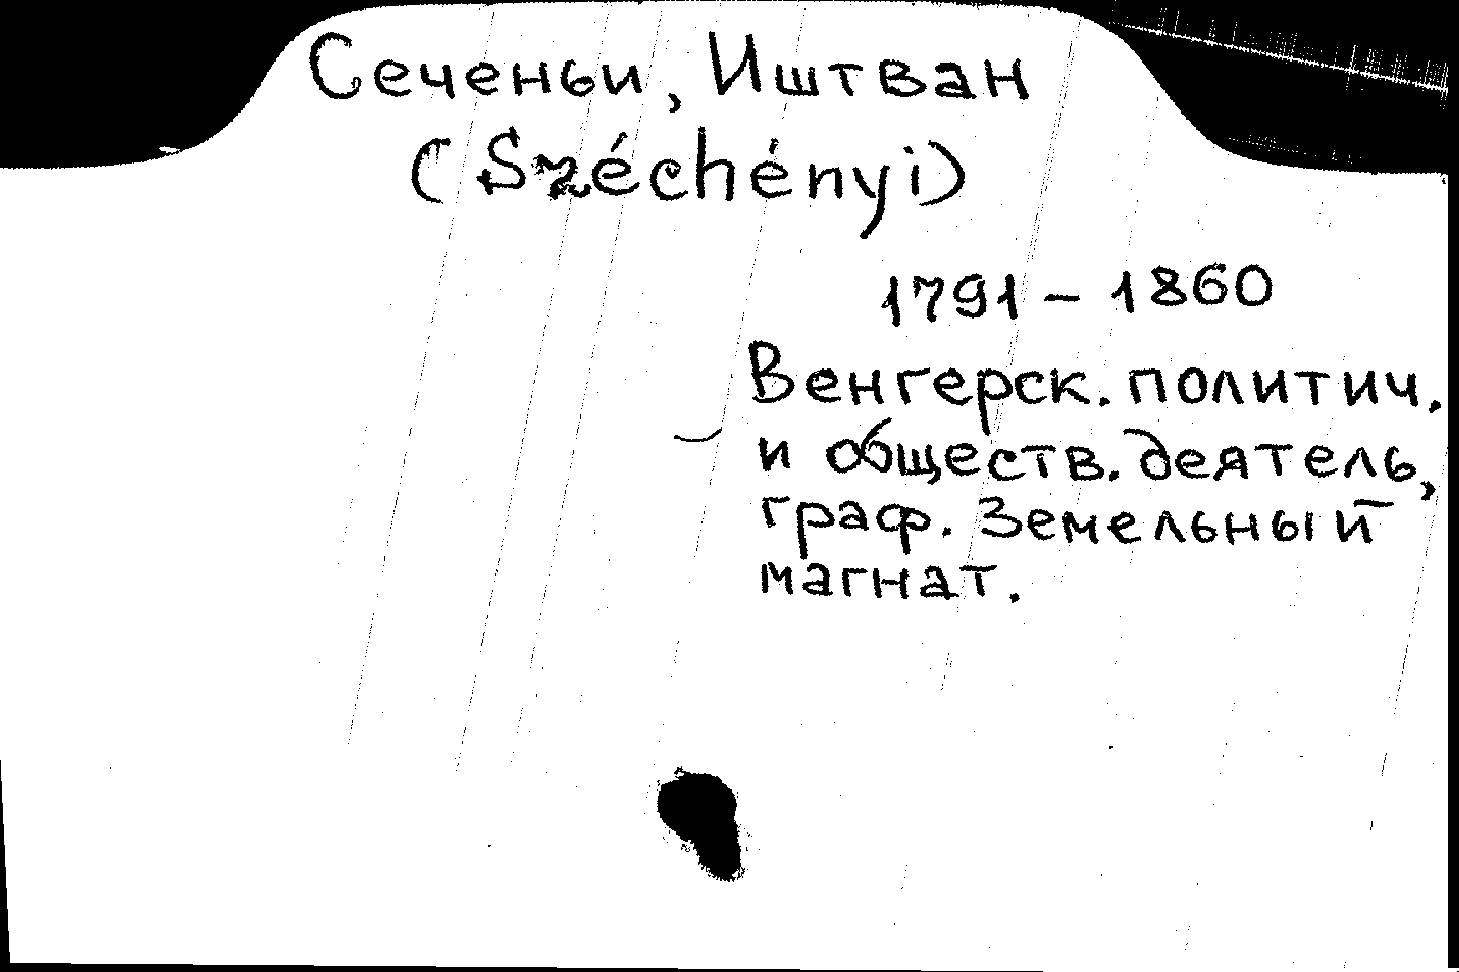 Сеченьи, Иштван
(Széchényi)
1791 – 1860
Венгерск. политич.
и обществ. деятель,
граф. Земельный
магнат.